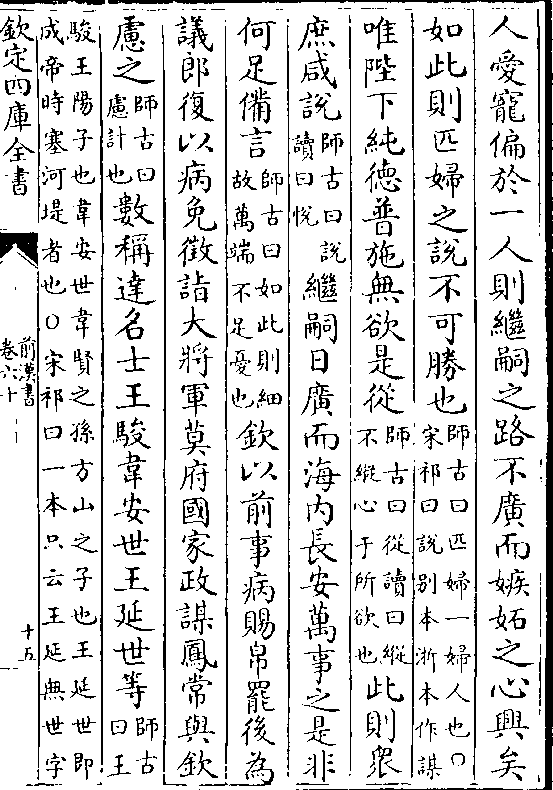 人愛寵偏於一人則繼嗣之路不廣而嫉妬之心興矣
如此則匹婦之說不可勝也師古曰匹婦一婦人也○宋祁曰說别本浙本作謀
唯陛下純德普施無欲是從師古曰從讀曰縱不縱心于所欲也此則衆
庶咸說師古曰說讀曰悅繼嗣日廣而海内長安萬事之是非
何足備言師古曰如此則細故萬端不足憂也欽以前事病賜帛罷後為
議郎復以病免徵詣大將軍莫府國家政謀鳳常與欽
慮之師古曰慮計也數稱達名士王駿韋安世王延世等師古曰王
駿王陽子也韋安世韋賢之孫方山之子也王延世即成帝時塞河堤者也○宋祁曰一本只云王延無世字
欽定四庫全書
前漢書
卷六十
十五